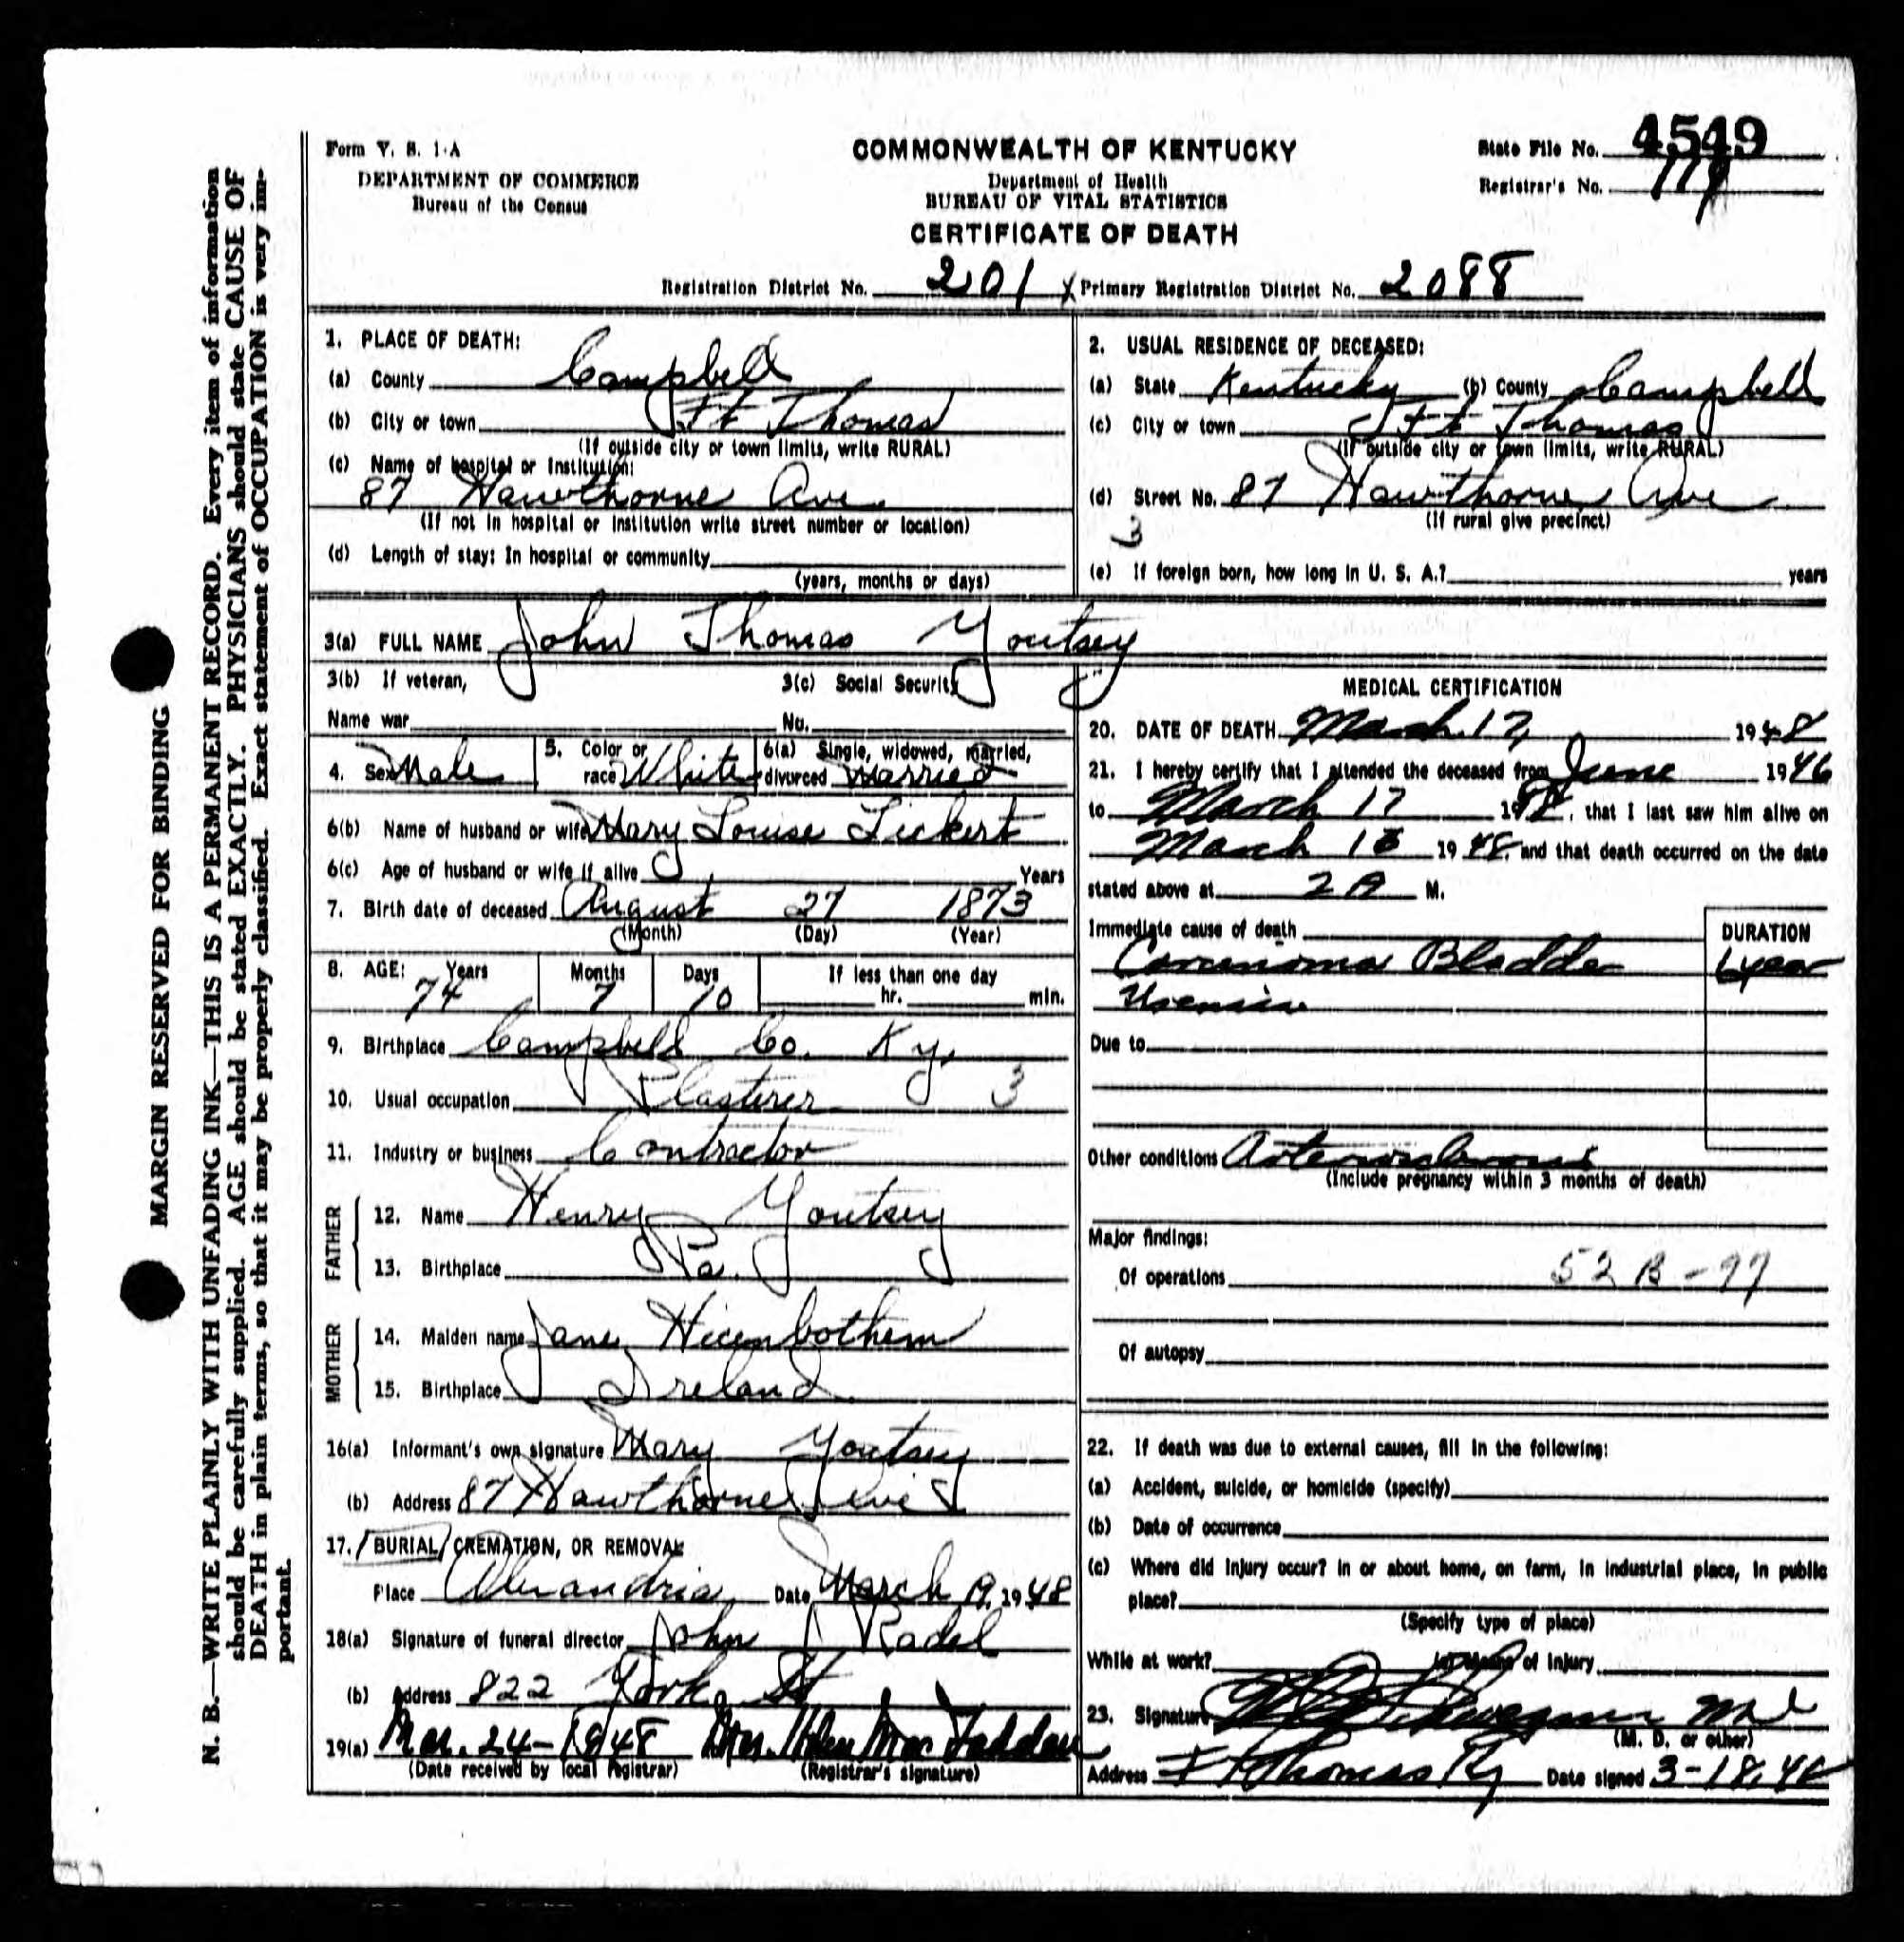 Form V. S. 1-A
DEPARTMENT OF COMMERCE
Bureau of the Census
COMMONWEALTH OF KENTUCKY
Department of Health
BUREAU OF VITAL STATISTICS
CERTIFICATE OF DEATH
State File No. 4549
Registrar's No.
Registration District No. 201 Primary Registration District No. 2088
MARGIN RESERVED FOR BINDING
N. B.—WRITE PLAINLY WITH UNFADING INK—THIS IS A PERMANENT RECORD. Every item of information
should be carefully supplied. AGE should be stated EXACTLY. PHYSICIANS should state CAUSE OF
DEATH in plain terms, so that it may be properly classified. Exact statement of OCCUPATION is very im-
portant.
1. PLACE OF DEATH:
(a) County Campbell
(b) City or town Ft Thomas
(If outside city or town limits, write RURAL)
(c) Name of hospital or Institution:
87 Hawthorne Ave
(If not in hospital or institution write street number or location)
(d) Length of stay: In hospital or community
(years, months or days)
2. USUAL RESIDENCE OF DECEASED:
(a) State Kentucky (b) County Campbell
(c) City or town Ft Thomas
(If outside city or town limits, write RURAL)
(d) Street No. 87 Hawthorne Ave
(If rural give precinct)
3
(e) If foreign born, how long in U. S. A.? years
3(a) FULL NAME John Thomas Youtsey
3(b) If veteran, 3(c) Social Security
Name war No.
4. Sex Male 5. Color or race White 6(a) Single, widowed, married, divorced Married
6(b) Name of husband or wife Mary Louise Lickert
6(c) Age of husband or wife if alive Years
7. Birth date of deceased August 27 1873
(Month) (Day) (Year)
8. AGE: Years Months Days If less than one day
74 7 10 hr. min.
9. Birthplace Campbell Co. Ky.
10. Usual occupation Plasterer 3
11. Industry or business Contractor
FATHER
12. Name Henry Youtsey
13. Birthplace Pa.
MOTHER
14. Maiden name Jane Hicenbothem
15. Birthplace Ireland
16(a) Informant's own signature Mary Youtsey
(b) Address 87 Hawthorne Ave
17. BURIAL, CREMATION, OR REMOVAL
Place Alexandria Date March 19, 1948
18(a) Signature of funeral director John J Radel
(b) Address 822 York St
19(a) Mar. 24-1948 Mrs. Helen Mac Fadden
(Date received by local registrar) (Registrar's signature)
MEDICAL CERTIFICATION
20. DATE OF DEATH March 17, 1948
21. I hereby certify that I attended the deceased from June 1946
to March 17 1948, that I last saw him alive on
March 16 1948, and that death occurred on the date
stated above at 2 A M.
Immediate cause of death DURATION
Carcinoma Bladder year
Uremia
Due to
Other conditions Arteriosclerosis
(Include pregnancy within 3 months of death)
Major findings:
Of operations 52 B-97
Of autopsy
22. If death was due to external causes, fill in the following:
(a) Accident, suicide, or homicide (specify)
(b) Date of occurrence
(c) Where did injury occur? In or about home, on farm, in industrial place, in public
place?
(Specify type of place)
While at work? of injury
23. Signature
(M. D. or other)
Address Ft Thomas Ky Date signed 3-18-48